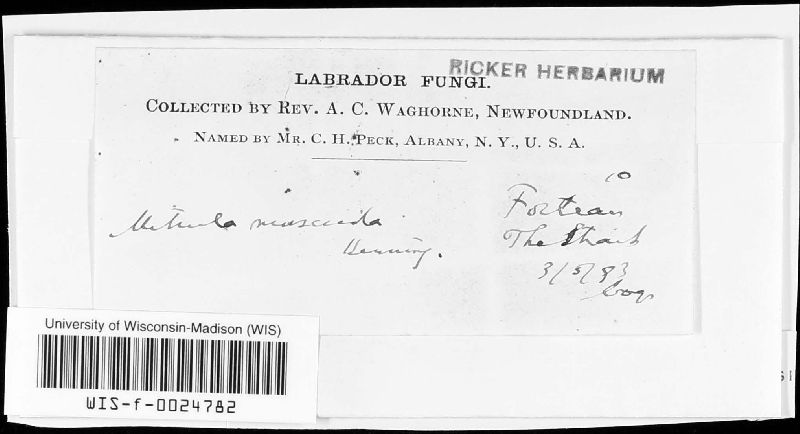 RICKER HERBARIUM
LABRADOR FUNGI.
COLLECTED BY REV. A. C. WAGHORNE, NEWFOUNDLAND.
NAMED BY MR. C. H. PECK, ALBANY, N. Y., U. S. A.
10
Mitrula muscicola
Henning.
Forteau
The Strait
3/5/93
bog
University of Wisconsin-Madison (WIS)
WIS-f-0024782